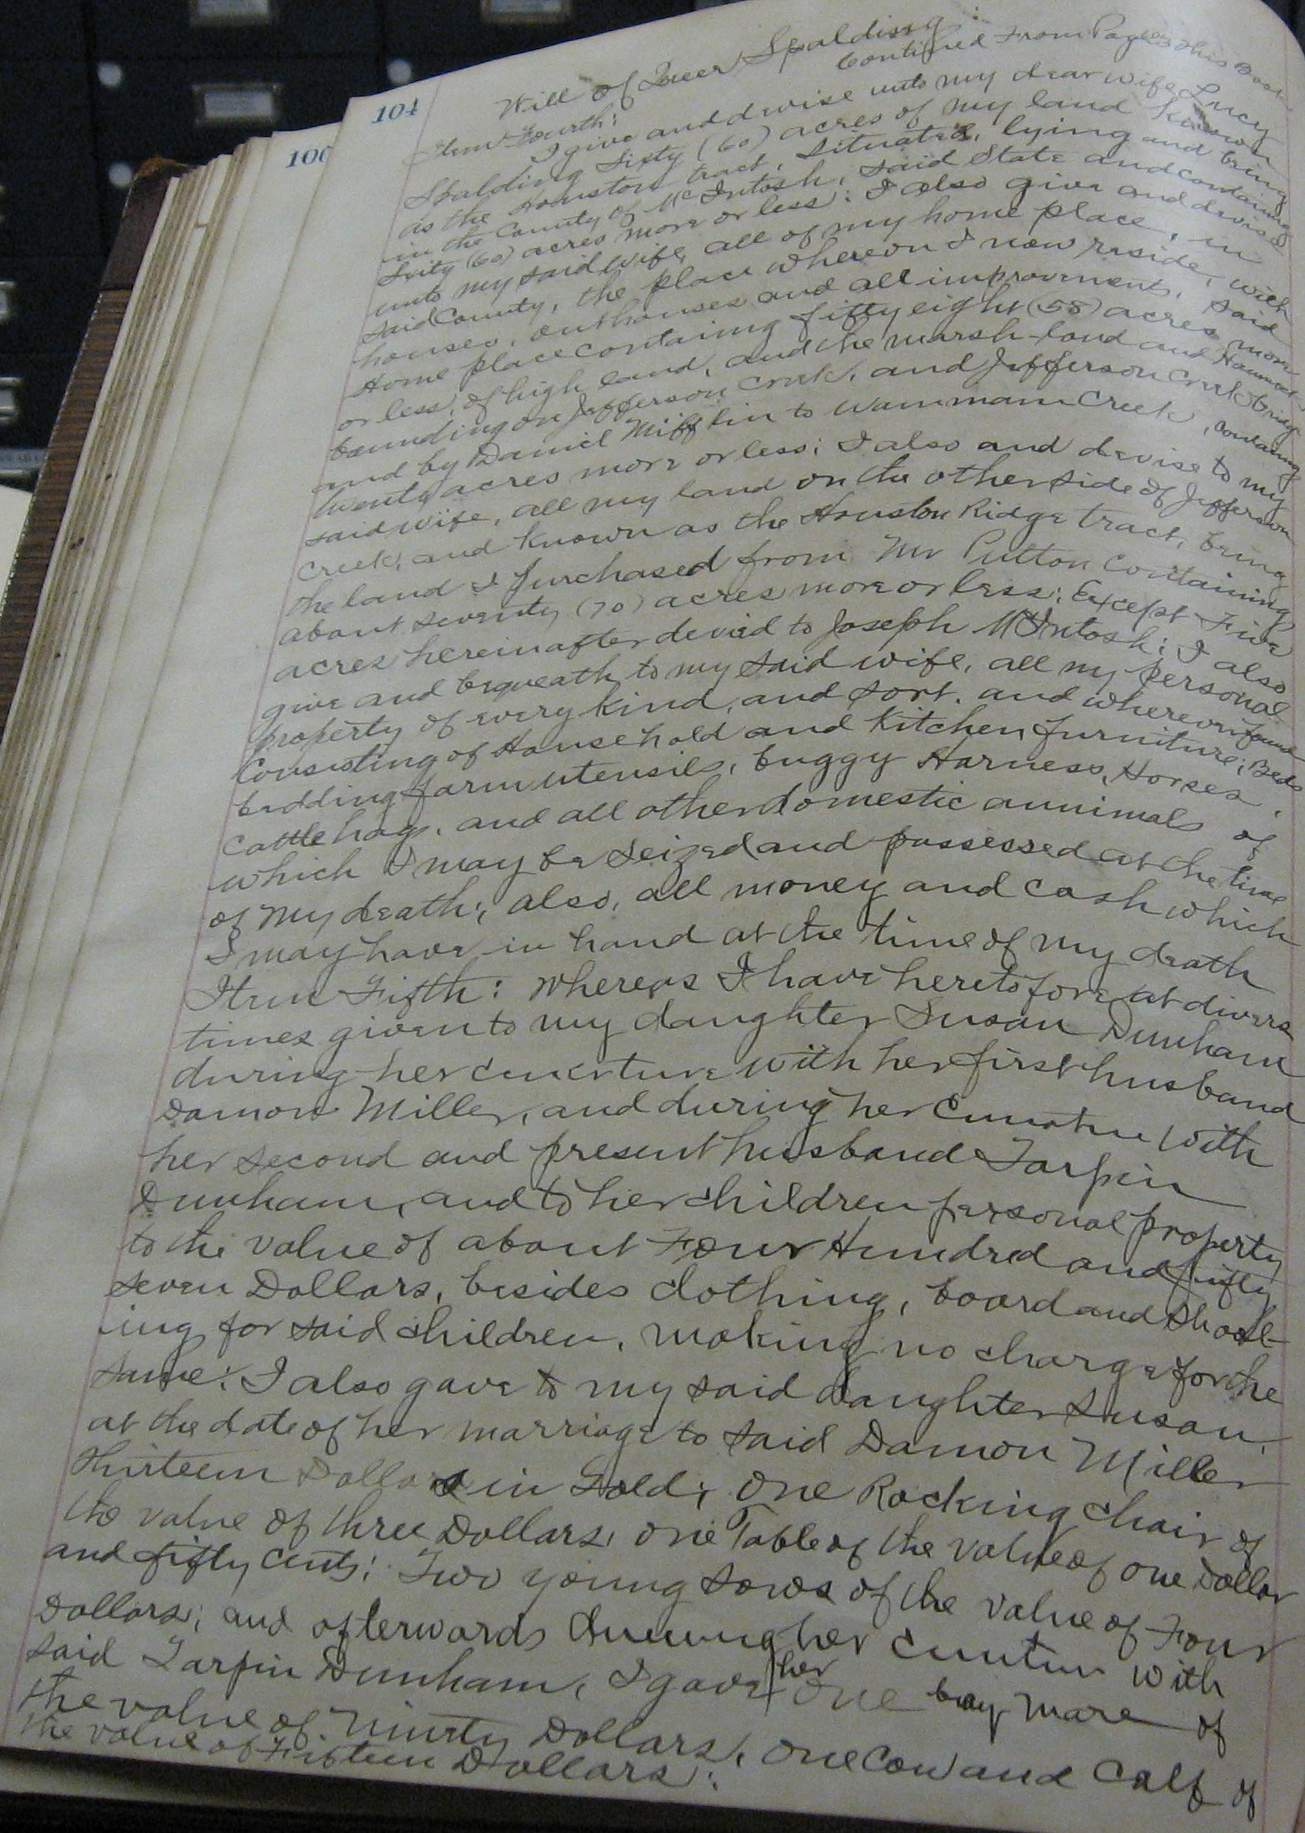 104
100
Will of Queer Spalding:
Contined From Page this Book
Item Fourth:
I give and devise unto my dear wife Lucy
Spalding Sixty (60) acres of my land known
as the Houston tract, situated, lying and being
in the County of McIntosh, said State and containing
Sixty (60) acres more or less: I also give and devise
unto my said wife, all of my home place, in
said County, the place whereon I now reside, with
houses, outhouses and all improvements, said
Home place containing fifty eight (58) acres more
or less, of high land, and the marsh-land and Hammock
bounding on Jefferson Creek, and Jefferson Creek to ridge
and by Daniel Mifflin to Wammam Creek, containing
twenty acres more or less; I also and devise to my
said wife, all my land on the other side of Jefferson
Creek, and known as the Houston Ridge tract, being
the land I purchased from Mr Putton Containing
about seventy (70) acres more or less; Except Five
acres hereinafter devied to Joseph McIntosh; I also
give and bequeath to my said wife, all my personal
property of every kind, and sort, and whereon found
Consisting of Household and Kitchen furniture; Beds
bedding farm utensils, buggy Harness, Horses,
Cattle hogs, and all other domestic annimals of
which I may be seized and possessed at the time
of my death; also, all money and cash which
I may have in hand at the time of my death
Item Fifth: Whereas I have heretofore at divers
times given to my daughter Susan Dunham
during her coverture with her first husband
Damon Miller, and during her with
her second and present husband Tarpin
Dunham, and to her children personal property
to the value of about Four Hundred and fifty
seven Dollars, besides clothing, board and School-
ing for said children, making no charge for the
same: I also gave to my said daughter Susan,
at the date of her marriage to said Damon Miller
Thirteen Dollars in Gold; one Rocking chair of
the value of three Dollars, one Table of the value of one Dollar
and fifty cents; Two young sows of the value of Four
Dollars; and afterwards during her with
said Tarpin Dunham, I gave her one bay mare of
the value of Ninty Dollars, one Cow and Calf of
the value of Fifteen Dollars: